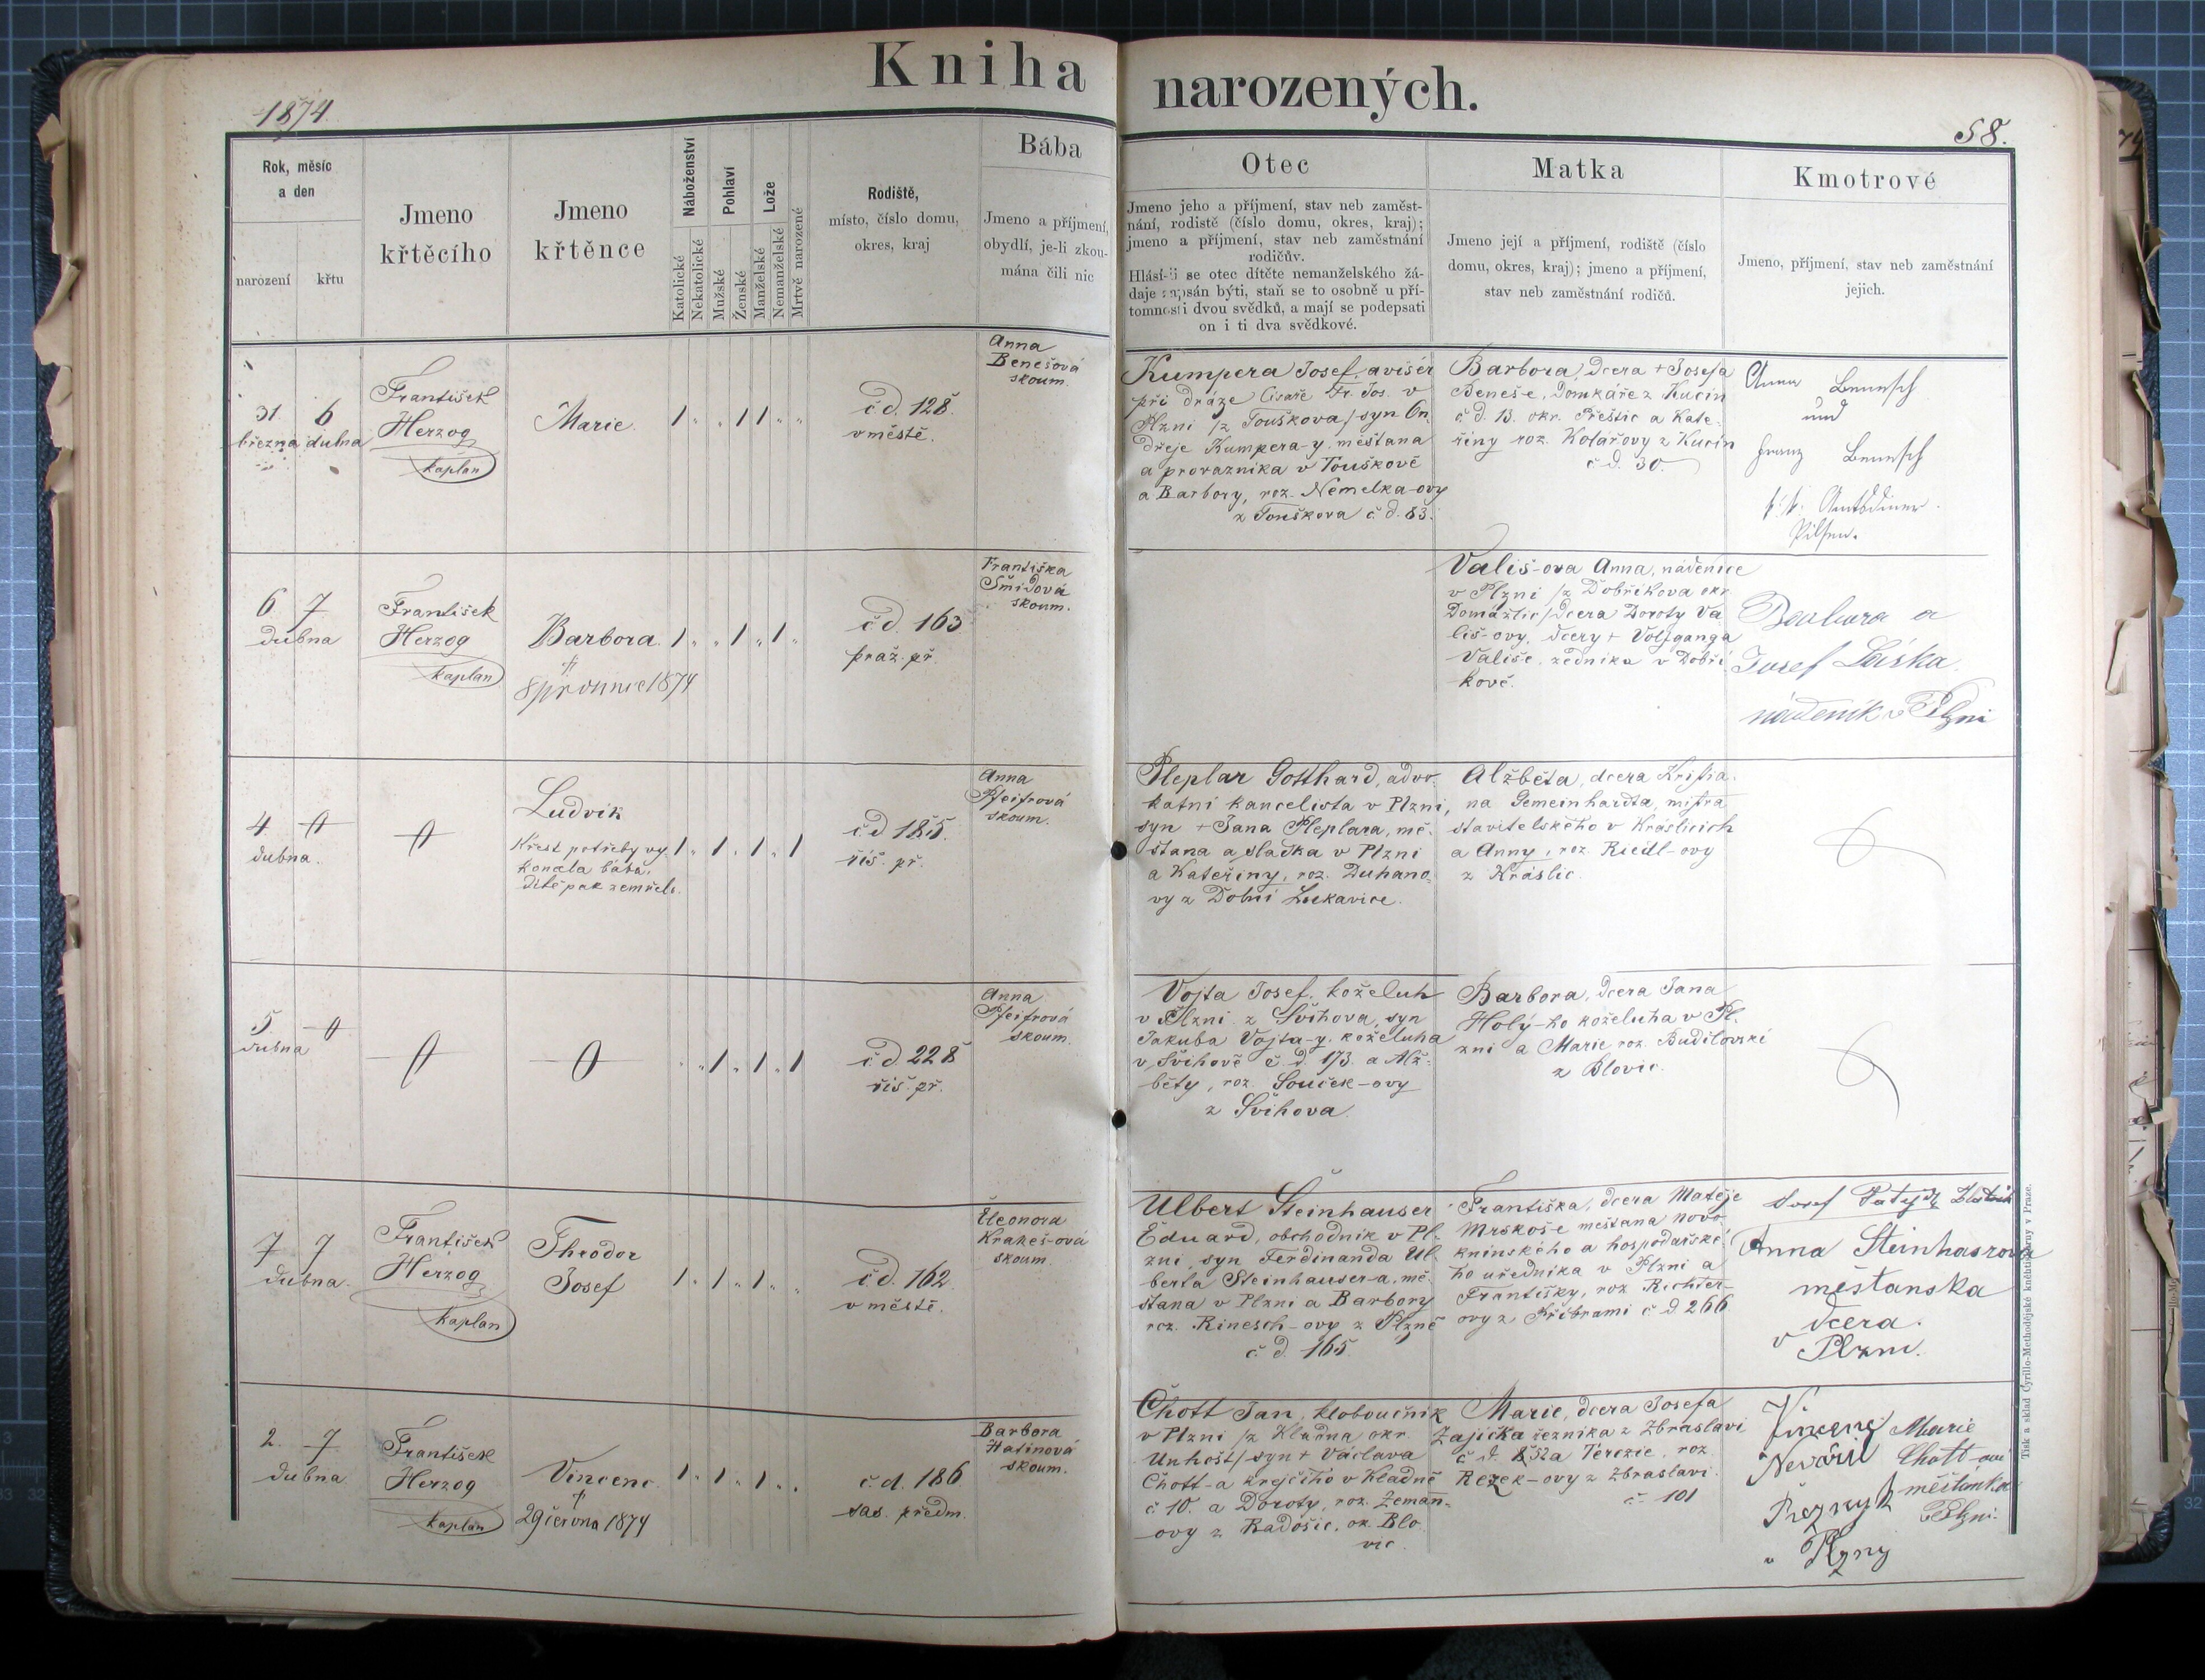 Kniha narozených.
1874
58.
Rok, měsíc
a den
narození
křtu
Jmeno
křtěcího
Jmeno
křtěnce
Náboženství
Katolické
Nekatolické
Pohlaví
Mužské
Ženské
Lože
Manželské
Nemanželské
Mrtvě narozené
Rodiště,
místo, číslo domu,
okres, kraj
Bába
Jmeno a příjmení,
obydlí, je-li zkou-
mána čili nic
Otec
Jmeno jeho a příjmení, stav neb zaměst-
nání, rodiště (číslo domu, okres, kraj);
jmeno a příjmení, stav neb zaměstnání
rodičův.
Hlásí-li se otec dítěte nemanželského žá-
daje zapsán býti, staň se to osobně u pří-
tomnosti dvou svědků, a mají se podepsati
on i ti dva svědkové.
Matka
Jmeno její a příjmení, rodiště (číslo
domu, okres, kraj); jmeno a příjmení,
stav neb zaměstnání rodičů.
Kmotrové
Jmeno, příjmení, stav neb zaměstnání
jejich.
31. 6
března dubna
František
Herzog
kaplan
Marie.
1 1 1
č.d. 128.
v městě.
Anna
Benešová
skoum.
Kumpera Josef, avisér
při dráze Císaře Fr. Jos. v
Plzni /z Touškova/ syn On
dřeje Kumpera-y, měšťana
a provazníka v Touškově
a Barbory, roz. Nemelka-ovy
z Touškova č. d. 83.
Barbora, dcera + Josefa
Beneše, Domkáře z Kucin
č. d. 13. okr. Přeštic a Kate-
řiny roz. Kolářovy z Kucin
č. d. 30.
Anna Benesch
und
Franz Benesch
k. k. Amtsdiener
Pilsen.
6 7
dubna
František
Herzog
kaplan
Barbora.
†
8 prosince 1874
1 1 1
č.d. 163
praž. př.
Františka
Šmídová
skoum.
Vališ-ova Anna, nádenice
v Plzni /z Dobříkova okr.
Domažlic/ dcera Doroty Va
liš-ovy, dcery + Volfganga
Vališe, zedníka v Dobří
kově.
Barbora a
Josef Láska
nádeník v Plzni
4.
dubna.
Ludvík
Křest potřeby vy-
konala bába,
dítě pak zemřelo.
1 1 1 1
č.d. 185.
říš. př.
Anna
Pfeifrová
skoum.
Pleplar Gotthard, advo-
kátní kancelista v Plzni,
syn + Jana Pleplara, mě-
šťana a sladka v Plzni
a Kateřiny, roz. Duhano-
vy z Dolní Lukavice.
Alžběta, dcera Kristia-
na Gemeinhardta, mistra
stavitelského v Kraslicích
a Anny, roz. Riedl-ovy
z Kraslic.
5.
dubna
1 1 1
č.d. 228
říš. př.
Anna
Pfeifrová
skoum.
Vojta Josef, koželuh
v Plzni z Švihova, syn
Jakuba Vojta-y, koželuha
v Švihově č. d. 173. a Alž-
běty, roz. Souček-ovy
z Švihova.
Barbora, dcera Jana
Holý-ho koželuha v Pl-
zni a Marie roz. Budilovské
z Blovic.
7 7
dubna.
František
Herzog
kaplan
Theodor
Josef
1 1 1
č.d. 162
v městě.
Eleonora
Krakeš-ová
skoum.
Ulbert Steinhauser
Eduard, obchodník v Pl-
zni, syn Ferdinanda Ul-
berta Steinhauser-a, mě-
šťana v Plzni a Barbory
roz. Rinesch-ovy z Plzně
č. d. 165.
Františka, dcera Matěje
Mrskoše měšťana novo-
knínského a hospodářské-
ho úředníka v Plzni a
Františky, roz. Richter-
ovy z Příbrami č. d. 266
Josef
Anna Steinhasrova
měšťanska
dcera
v Plzni.
2. 7
dubna
František
Herzog
kaplan
Vincenc
†
29 června 1874
1 1 1
č.d. 186
sas. předm.
Barbora
Hatinová
skoum.
Chott Jan, kloboučník
v Plzni /z Kladna okr.
Unhošť/ syn + Václava
Chott-a krejčího v Kladně
č. 10. a Doroty, roz. Zeman-
ovy z Radošic, ok. Blo
vic.
Marie, dcera Josefa
Zajíčka řezníka z Zbraslavi
č. d. a Terezie, roz.
Rezek-ovy z Zbraslavi
č. 101
Vincenc
Nevařil
Řezník
v Plzny
Marie
Chott-ová
měšťanka
v Plzni.
Tisk a sklad Cyrillo-Methodějské knihtiskárny v Praze.